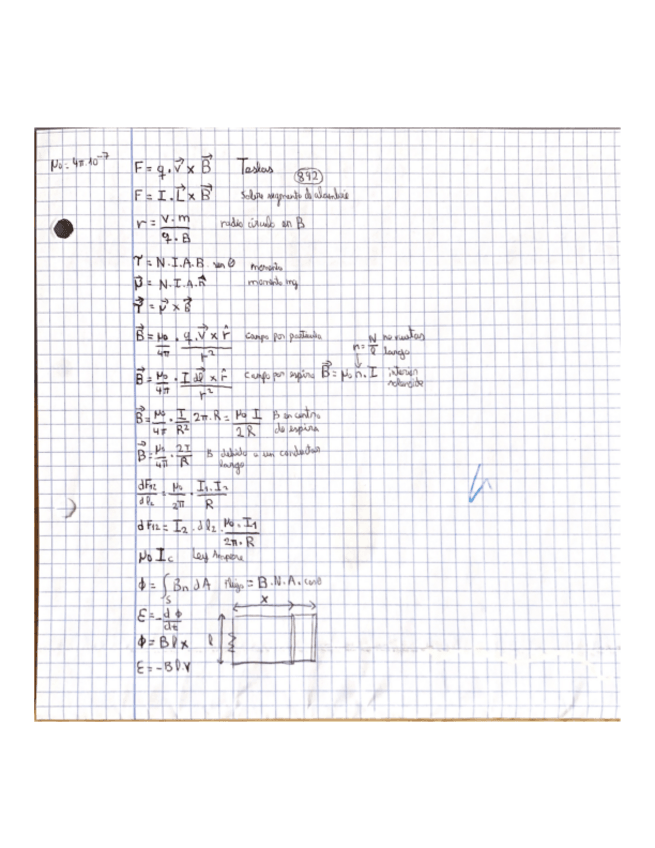 μ₀ = 4π.10⁻⁷
F = q.v⃗ x B⃗ Teslas (892)
F = I.L⃗ x B⃗ Sobre segmento de alambre
r = v.m / q.B radio círculo en B
τ = N.I.A.B sen θ momento
μ⃗ = N.I.A.n⃗ momento mg
τ⃗ = μ⃗ x B⃗
B⃗ = μ₀/4π . q.v⃗ x r̂ / r² Campo por partícula n = N/l no vueltas largo
B⃗ = μ₀/4π . I dl⃗ x r̂ / r² Campo por espira B⃗ = μ₀ n . I interior solenoide
B⃗ = μ₀/4π . I/R² 2π.R = μ₀ I / 2R B en centro de espira
B⃗ = μ₀/4π . 2I/R B debido a un conductor largo
dF₁₂/dl₂ = μ₀/2π . I₁.I₂/R
dF₁₂ = I₂ . dl₂ . μ₀.I₁ / 2π.R
μ₀ I_c Ley Ampere
ϕ = ∫_S Bn dA flujo = B.N.A.cosθ
ε = - dϕ/dt x
ϕ = B l x l
ε = -B l.v